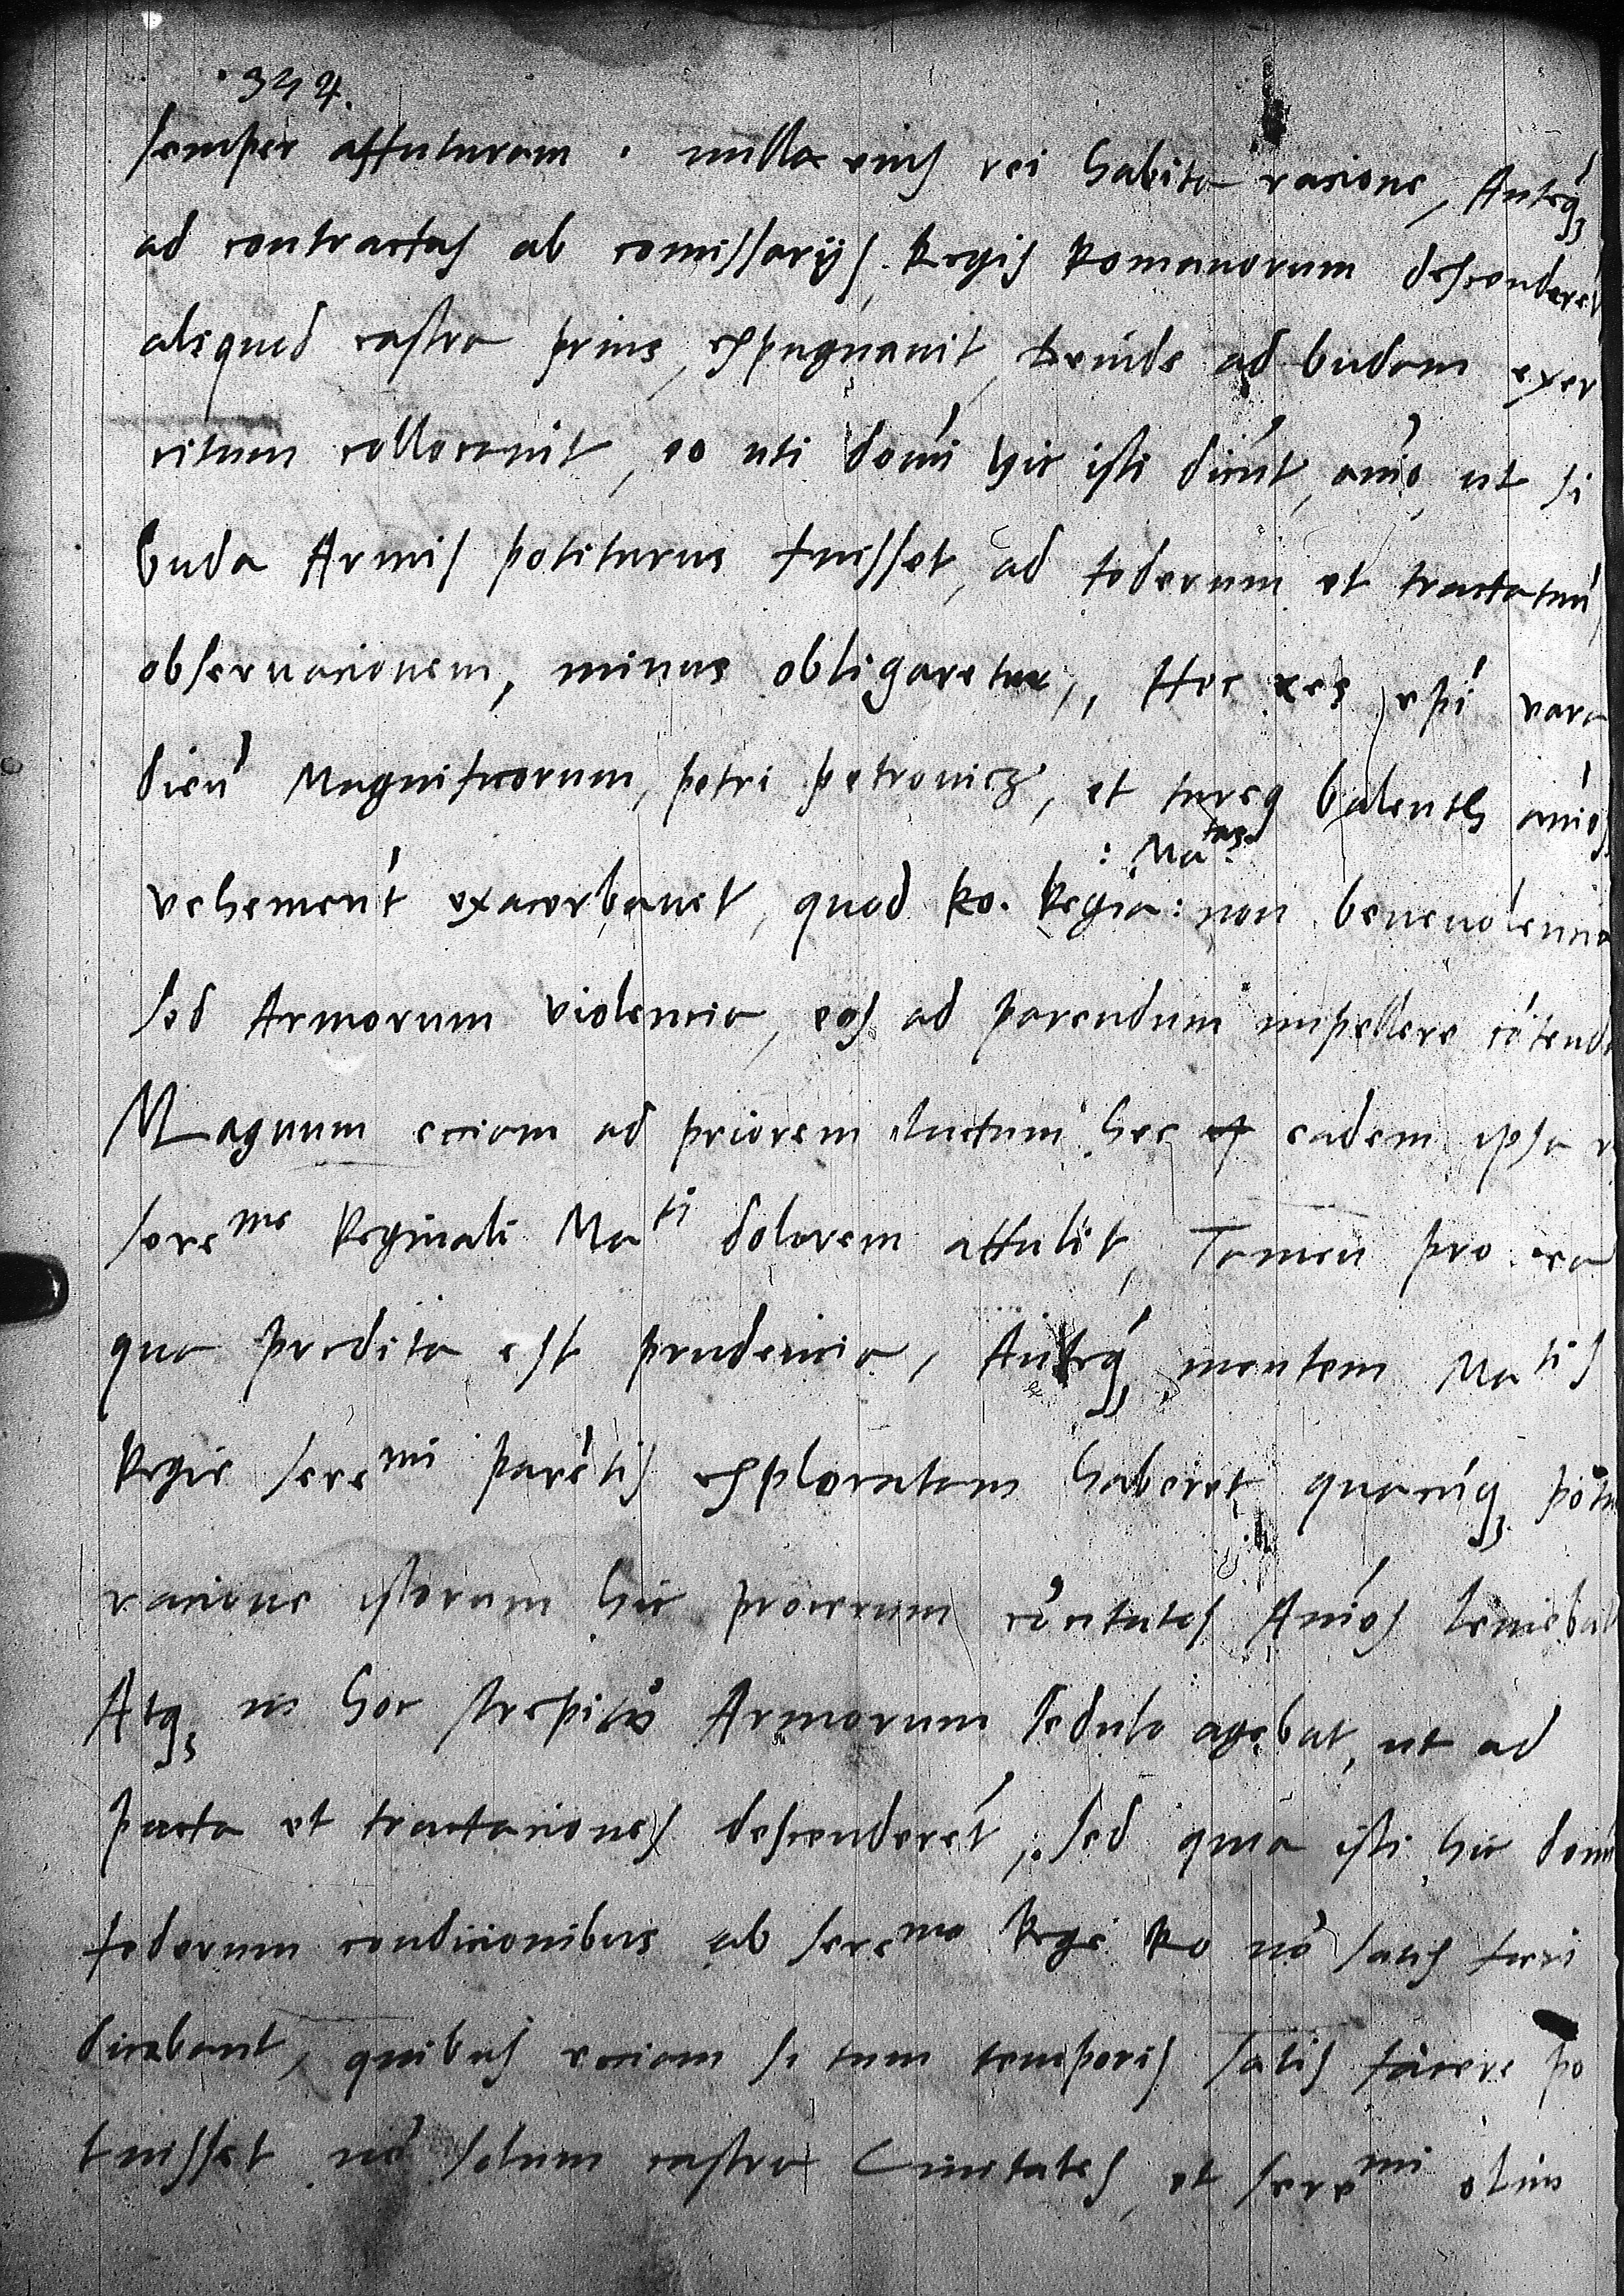 344.
semper affuturam . nulla eius rei habita racione, Anteq3
ad contractus ab comissarijs Regis Romanorum descenderet
aliquod castra prius, expugnauit, deinde ad budam exer
citum collocauit, eo uti domi hic isti dicut, aio, ut si
buda Armis potiturus fuisset, ad federum et tractatuu
obseruacionem, minus obligaretur,, Hec res epi vara
dien Magnificorum, petri petrouicz, et tureq balenth aios
vehement exacerbauet, quod Ro. Regia: Ma tas: non beneuolencia
sed Armorum violencia, eos ad parendum impellere cotend
Magnum eciam ad priorem luctum hec eadem ipsa r
sereme Reginali Mati dolorem attulit, Tamen pro ea
qua predita est prudencia, Anteq3 mentem Matis
Regie seremi paretis exploratam haberet quacuq3 potu
racione istorum hic procerum cocitatos Aios leniebat
Atq3 in hoc strepitu Armorum sedulo agebat, ut ad
pacta et tractaciones descenderet, sed quia isti hic domi
federum condicionibus ab seremo Rege Ro no satis fieri
dicebant, quibus eciam si tum temporis satis facere po
tuisset no solum castra Ciuitates, et seremi olim